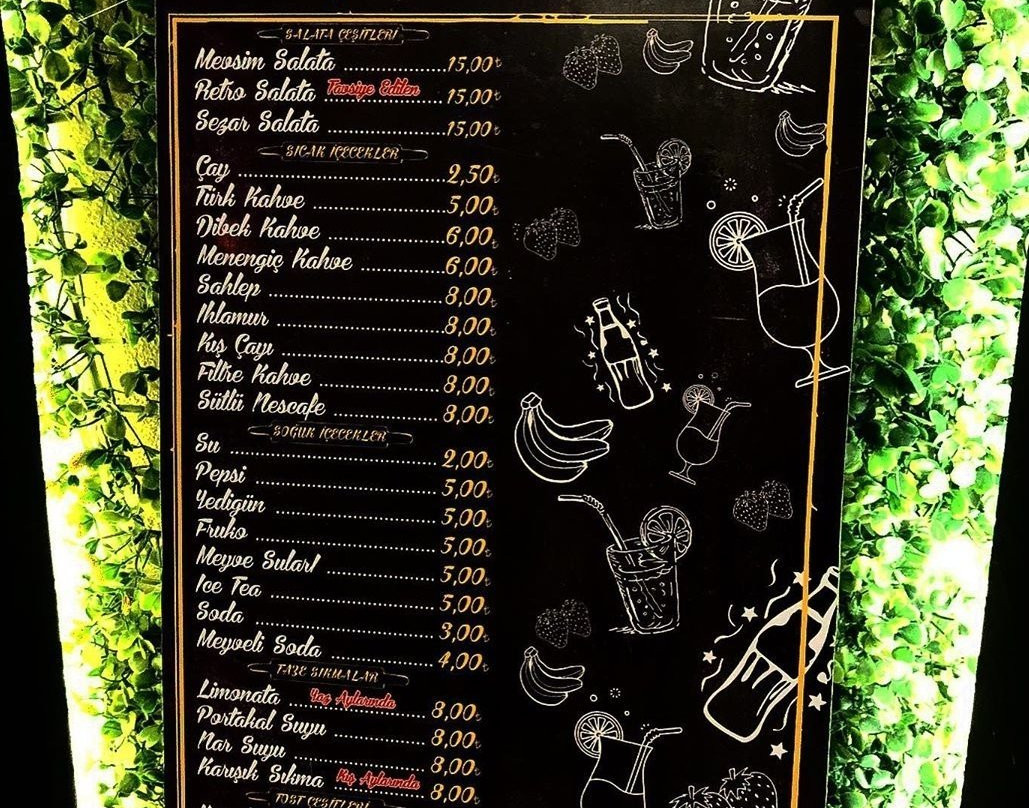 SALATA ÇEŞİTLERİ
Mevsim Salata ........................ 15,00₺
Retro Salata Tavsiye Edilen ........................ 15,00₺
Sezar Salata ........................ 15,00₺
SICAK İÇECEKLER
Çay ........................ 2,50₺
Türk Kahve ........................ 5,00₺
Dibek Kahve ........................ 6,00₺
Menengiç Kahve ........................ 6,00₺
Sahlep ........................ 8,00₺
Ihlamur ........................ 8,00₺
Kış Çayı ........................ 8,00₺
Filtre Kahve ........................ 8,00₺
Sütlü Nescafe ........................ 8,00₺
SOĞUK İÇECEKLER
Su ........................ 2,00₺
Pepsi ........................ 5,00₺
Yedigün ........................ 5,00₺
Fruko ........................ 5,00₺
Meyve Suları ........................ 5,00₺
Ice Tea ........................ 5,00₺
Soda ........................ 3,00₺
Meyveli Soda ........................ 4,00₺
TAZE SIKMALAR
Limonata Yaz Aylarında ........................ 8,00₺
Portakal Suyu ........................ 8,00₺
Nar Suyu ........................ 8,00₺
Karışık Sıkma Kış Aylarında ........................ 8,00₺
TOST ÇEŞİTLERİ